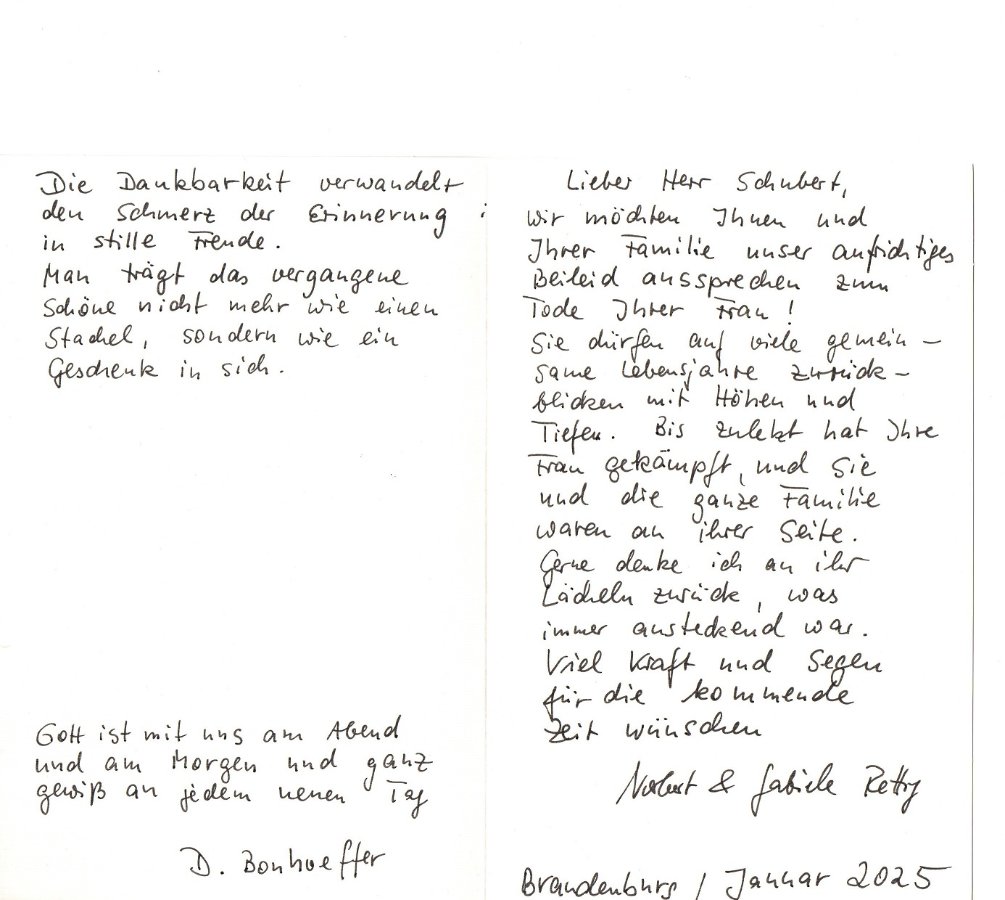 Die Dankbarkeit verwandelt
den Schmerz der Erinnerung
in stille Freude.
Man trägt das vergangene
Schöne nicht mehr wie einen
Stachel, sondern wie ein
Geschenk in sich.
Gott ist mit uns am Abend
und am Morgen und ganz
gewiß an jedem neuen Tag
D. Bonhoeffer
Lieber Herr Schubert,
wir möchten Ihnen und
Ihrer Familie unser aufrichtiges
Beileid aussprechen zum
Tode Ihrer Frau!
Sie dürfen auf viele gemein-
same Lebensjahre zurück-
blicken mit Höhen und
Tiefen. Bis zuletzt hat Ihre
Frau gekämpft, und Sie
und die ganze Familie
waren an ihrer Seite.
Gerne denke ich an ihr
Lächeln zurück, was
immer ansteckend war.
Viel Kraft und Segen
für die kommende
Zeit wünschen
Norbert & Gabriele
Brandenburg / Januar 2025